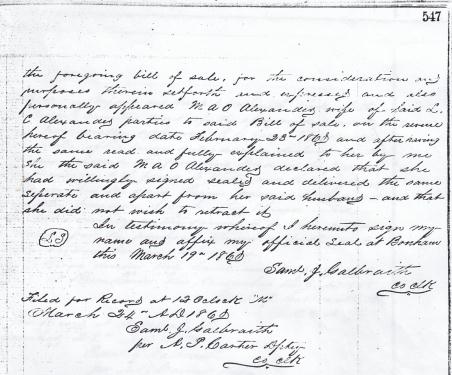 547
the foregoing bill of sale, for the consideration and
purposes therein setforth and expressed and also
personally appeared M A O Alexander wife of Said L.
C Alexander parties to said Bill of sale. on the
hereof bearing date February 23rd and after having
the same read and fully explained to her by me
She the said M A O Alexander declared that she
had willingly signed sealed and delivered the same
Seperate and apart from her said husband - and that
she did not wish to retract it
In testimony whereof I hereunto sign my
name and affix my official Seal at Bonham
this March 19th
Saml. J. Galbraith
co clk
Filed for Record at 12 Oclock "M"
March 24th AD
Saml. J. Galbraith
per A. P. Carter Dpty
Co. Clk